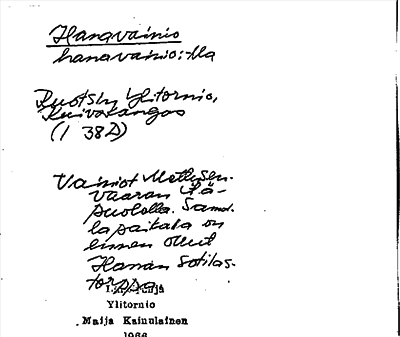 Hanavainio
hanavainio:lla
Ruotsin Ylitornio,
Kuivakangas
(I 38D)
Vainiot Metlysen-
vaaran itä-
puolella. Samal-
la paikalla on
ennen ollut
Hanan sotilas-
torppa
Ylitornio
Maija Kainulainen
1966